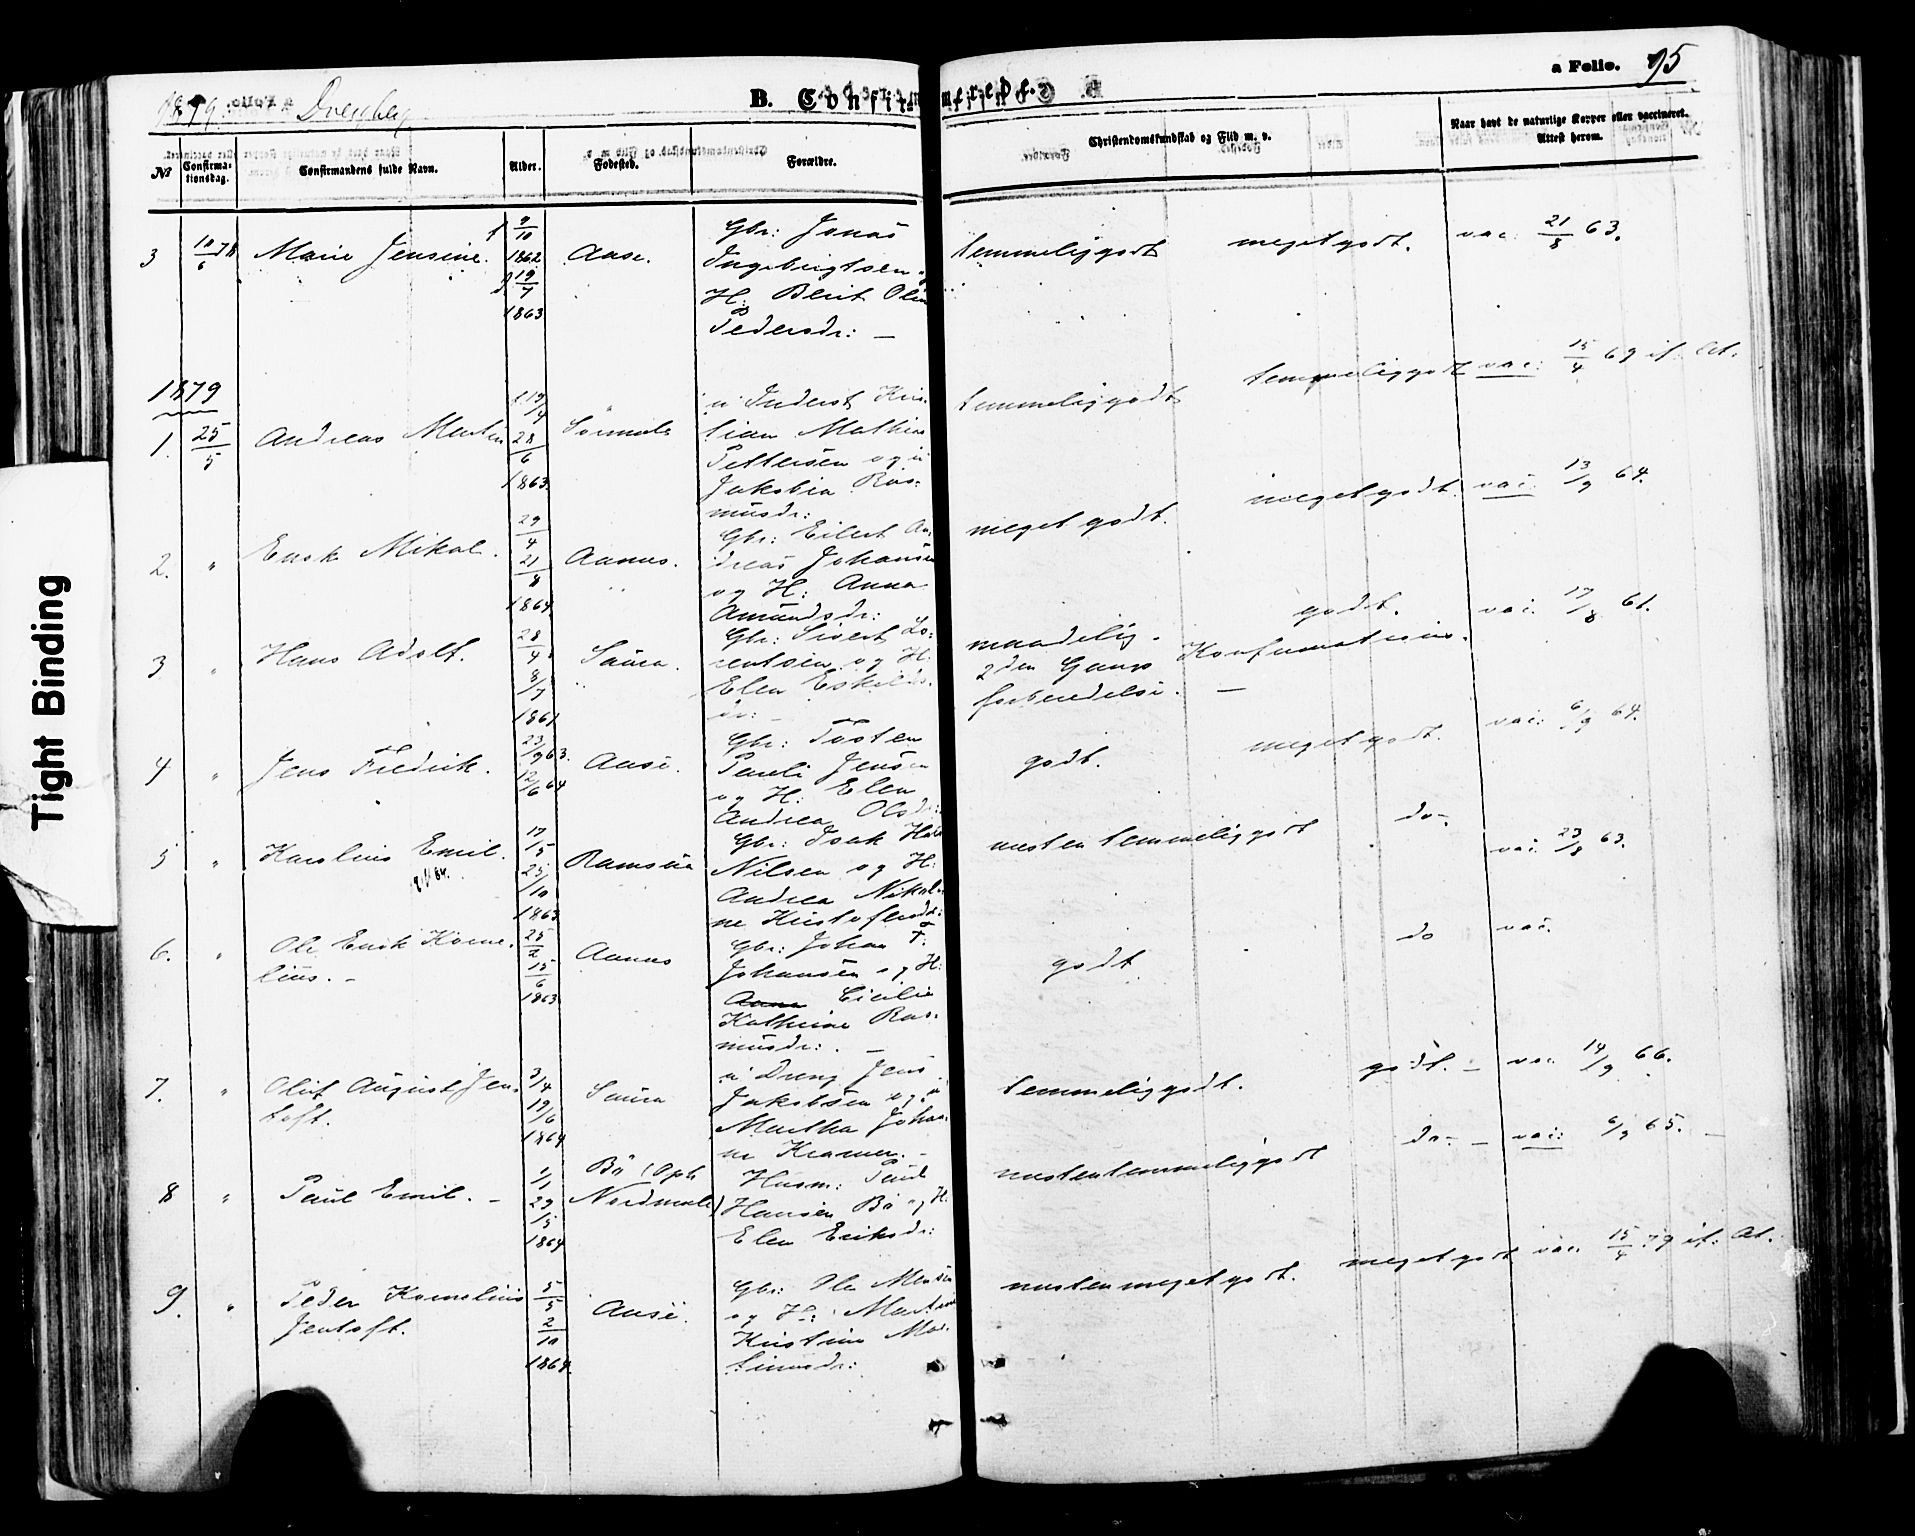 Tight Binding
1879. Dverbberg
B. Confirmerede.
a Folio. 95
No
Confirmationsdag.
Confirmandens fulde Navn.
Alder.
Fødested.
Forældre.
Christendomskundskab og Flid m. v.
Naar havt de naturlige Kopper eller vaccineret.
Attest herom.
3 10/6 78 Marie Jensine. f 9/10 1862 d 19/7 1863 Aase.
Gbr: Jonas
Ingebrigtsen og
H: Berit Olina
Pedersdr: —
temmelig godt meget godt. vac: 21/8 63.
1879
1. 25/5 Andreas Martin 19/4 28/6 1863. Sørmele
u: Inderst Kris-
tian Mathias
Pettersen og u:
Jakobia Ras-
musdr:
temmelig godt temmelig godt vac: 15/4 69 if: At.
2. " Enok Mikal. 29/4 21/8 1864. Aanes.
Gbr: Eilert An-
dreas Johansen
og H: Anna
Amundsdr:
meget godt. meget godt. vac. 13/9 64.
3 " Hans Adolf. 28/4 8/7 1861 Saura.
Gbr: Sivert Lo-
rentsen og H:
Elen Eskilds-
dr: —
maadelig.
2den Gangs Konfirmations-
forberedelse. —
godt. vac. 17/8 61.
4 " Jens Fredrik. 23/9 63. 12/6 64 Aase.
Gbr: Tosten
Pareli Jensen
og H: Elen
Andrea Olsdr:
godt. meget godt. vac: 6/9 64.
5 " Karolius Emil. 17/5 25/10 1863 Ramsaa
Gbr: Isak
Nilsen og H:
Andrea Nikoli-
ne Kristofersdr:
næsten temmelig godt do. vac. 23/8 63.
6. " Ole Enok Korne-
lius. — 25/2 15/6 1863 Aanes
Gbr: Johan F.
Johansen og H:
Anna Cicilie
Kathrine Ras-
musdr: . —
godt do vac.
7. " Oluf August Jen-
toft. 3/4 19/6 1864 Saura
u: Dreng Jens
Jakobsen og u:
Martha Johan-
ne Kramer. —
temmelig godt. godt. — vac. 14/9 66.
8 " Paul Emil. — 1/1 29/5 1864 Bø (Oph Nordmele)
Husm: Paul
Hansen Bø og H:
Elen Eriksdr:
næsten temmelig godt do. — vac: 6/9 65. —
9. " Peder Kornelius
Jentoft. 5/5 2/10 1864. Aase.
Gbr: Ole Mensen
og H: Martine
Kristine Mor-
tinusdr:
næsten meget godt. meget godt vac. 15/4 79 if: At.